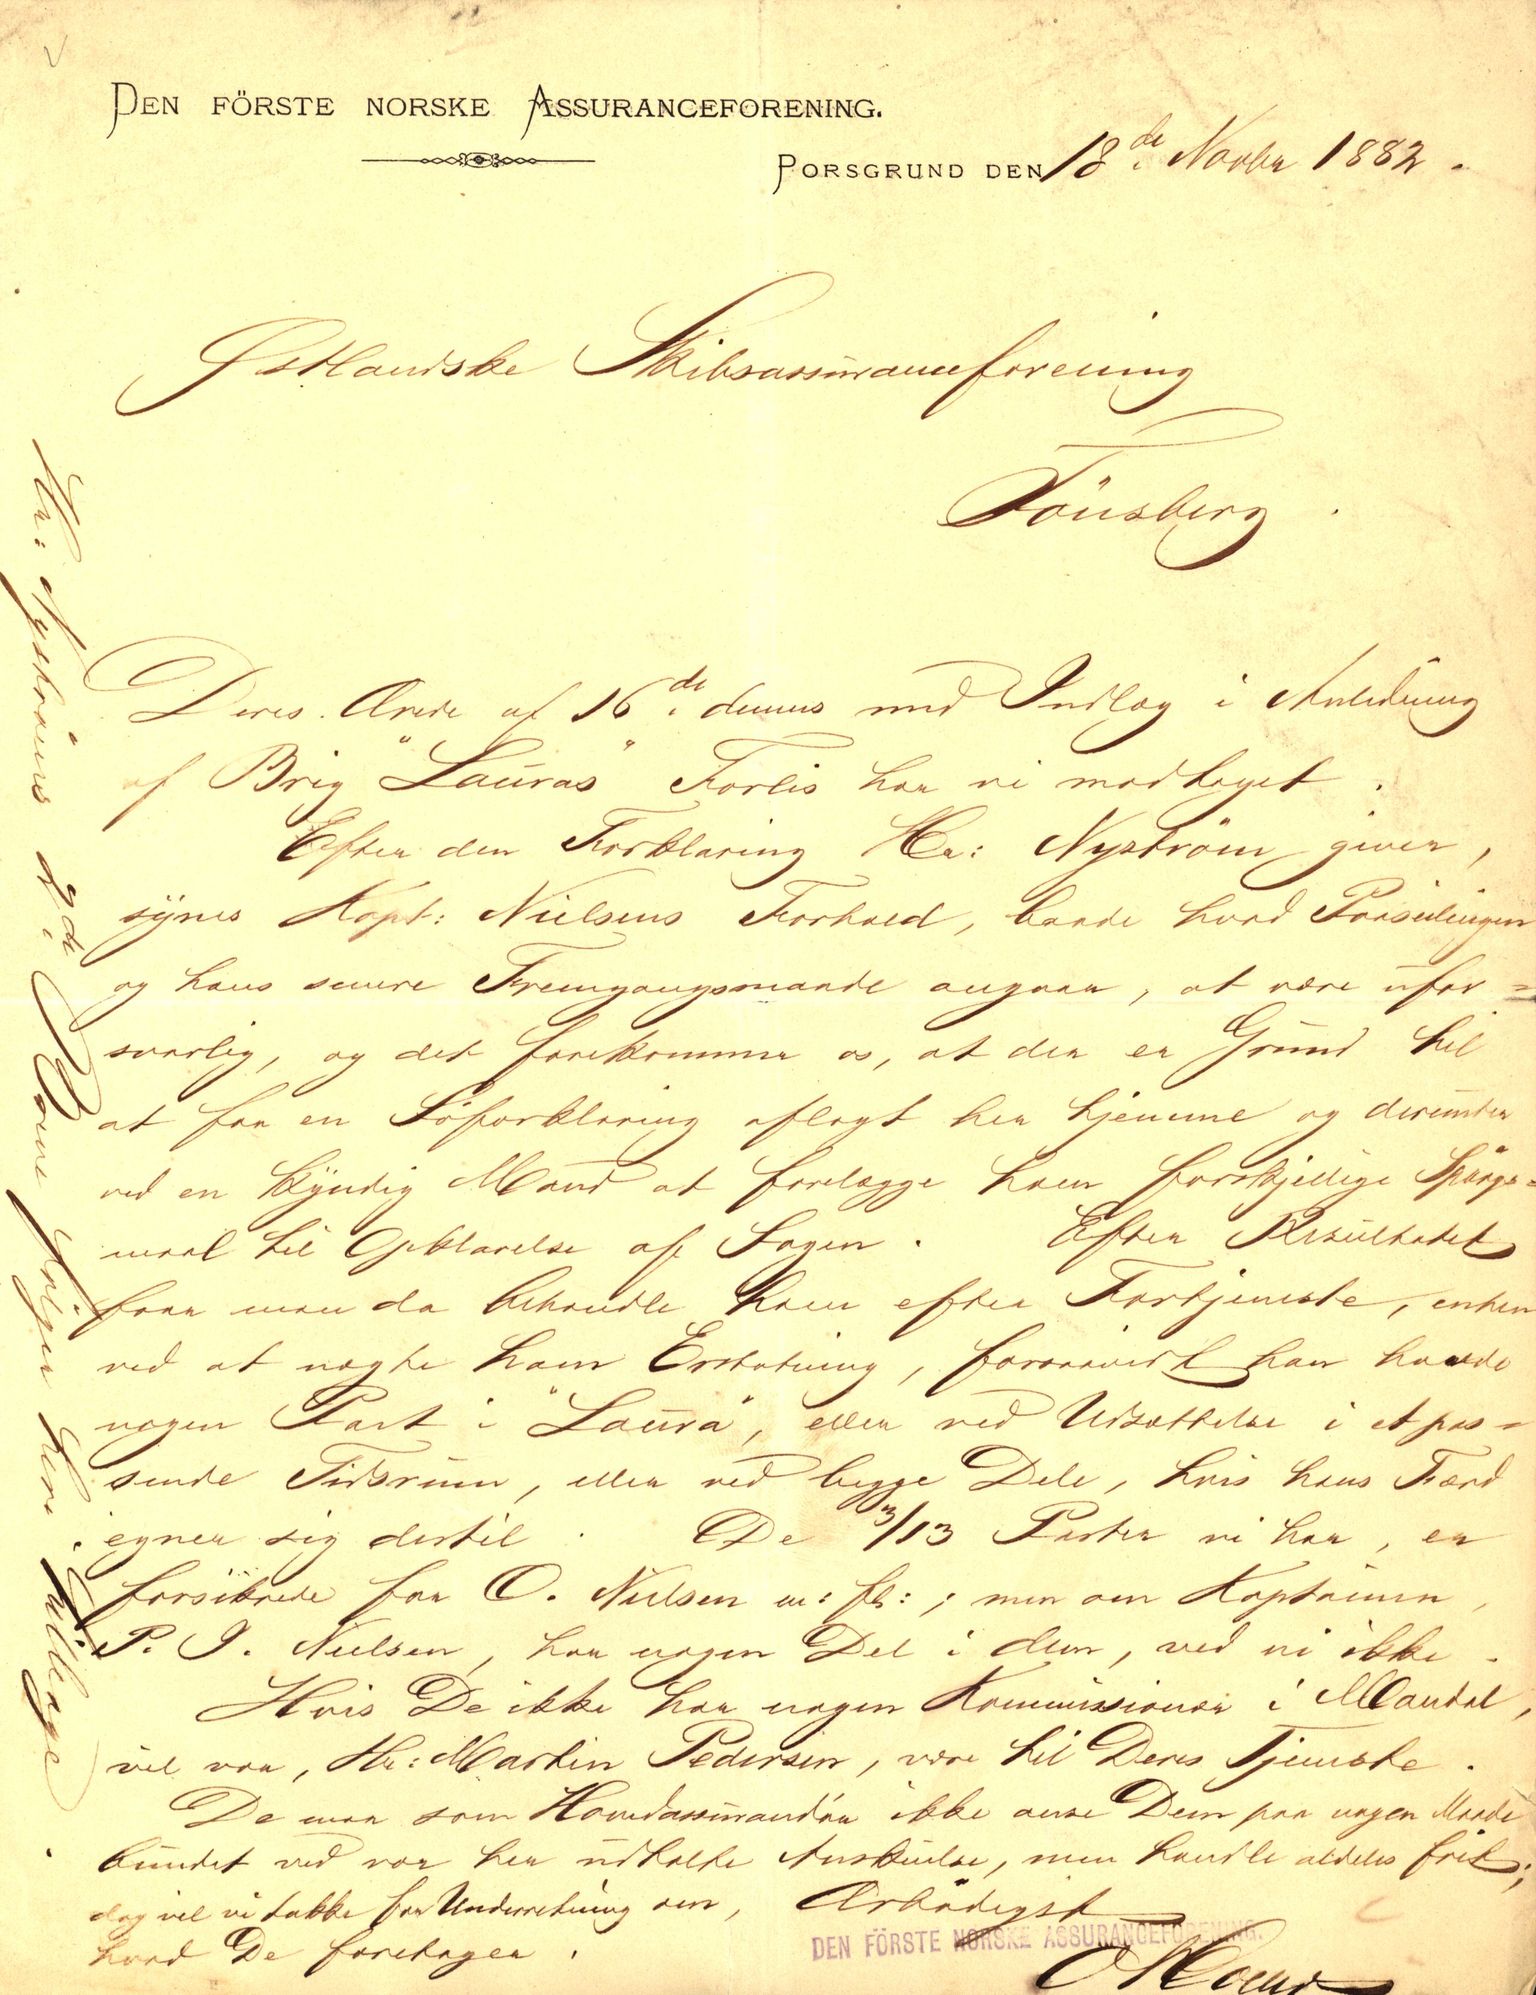 DEN FÖRSTE NORSKE ASSURANCEFORENING.
PORSGRUND DEN 18de Novbr 1882.
Østlandske Skibsassuranceforening
Tönsberg.
Deres Ærede af 16de dennes med Indlæg i Anledning
af Brig "Lauras" Forlis har vi modtaget.
Efter den Forklaring Hr: Nyström giver,
synes Kapt: Nielsens Forhold, baade hvad Paaseilingen
og hans senere Fremgangsmaade angaar, at være ufor=
svarlig, og det forekommer os, at der er Grund til
at faa en Söforklaring aflagt her hjemme og derunder
ved en kyndig Mand at forelægge ham forskjellige Spörgs=
maal til Opklarelse af Sagen. Efter Resultatet
faar man da behandle ham efter Fortjeneste, enten
ved at nægte ham Erstatning, forsaavidt han havde
nogen Part i "Laura", eller ved Udsættelse i et pas=
sende Tidsrum, eller ved begge Dele, hvis hans Færd
egner sig dertil. De 3/13 Parter vi har, er
forsikrede for O. Nielsen m: fl:; men om Kaptainen,
P. J. Nielsen, har nogen Del i dem, ved vi ikke.
Hvis De ikke har nogen Kommissionær i Mandal,
vil vor, Hr: Martin Pedersen, være til Deres Tjeneste.
De maa som Hovedassurandör ikke anse Dem paa nogen Maade
bundet ved vor her udtalte Anskuelse, men handle aldeles frit;
dog vil vi takke for Underretning om,
hvad De foretager.
Ærbödigst
DEN FÖRSTE NORSKE ASSURANCEFORENING.
Hr: Nyströms 2de Breve fölger hermed tilbage